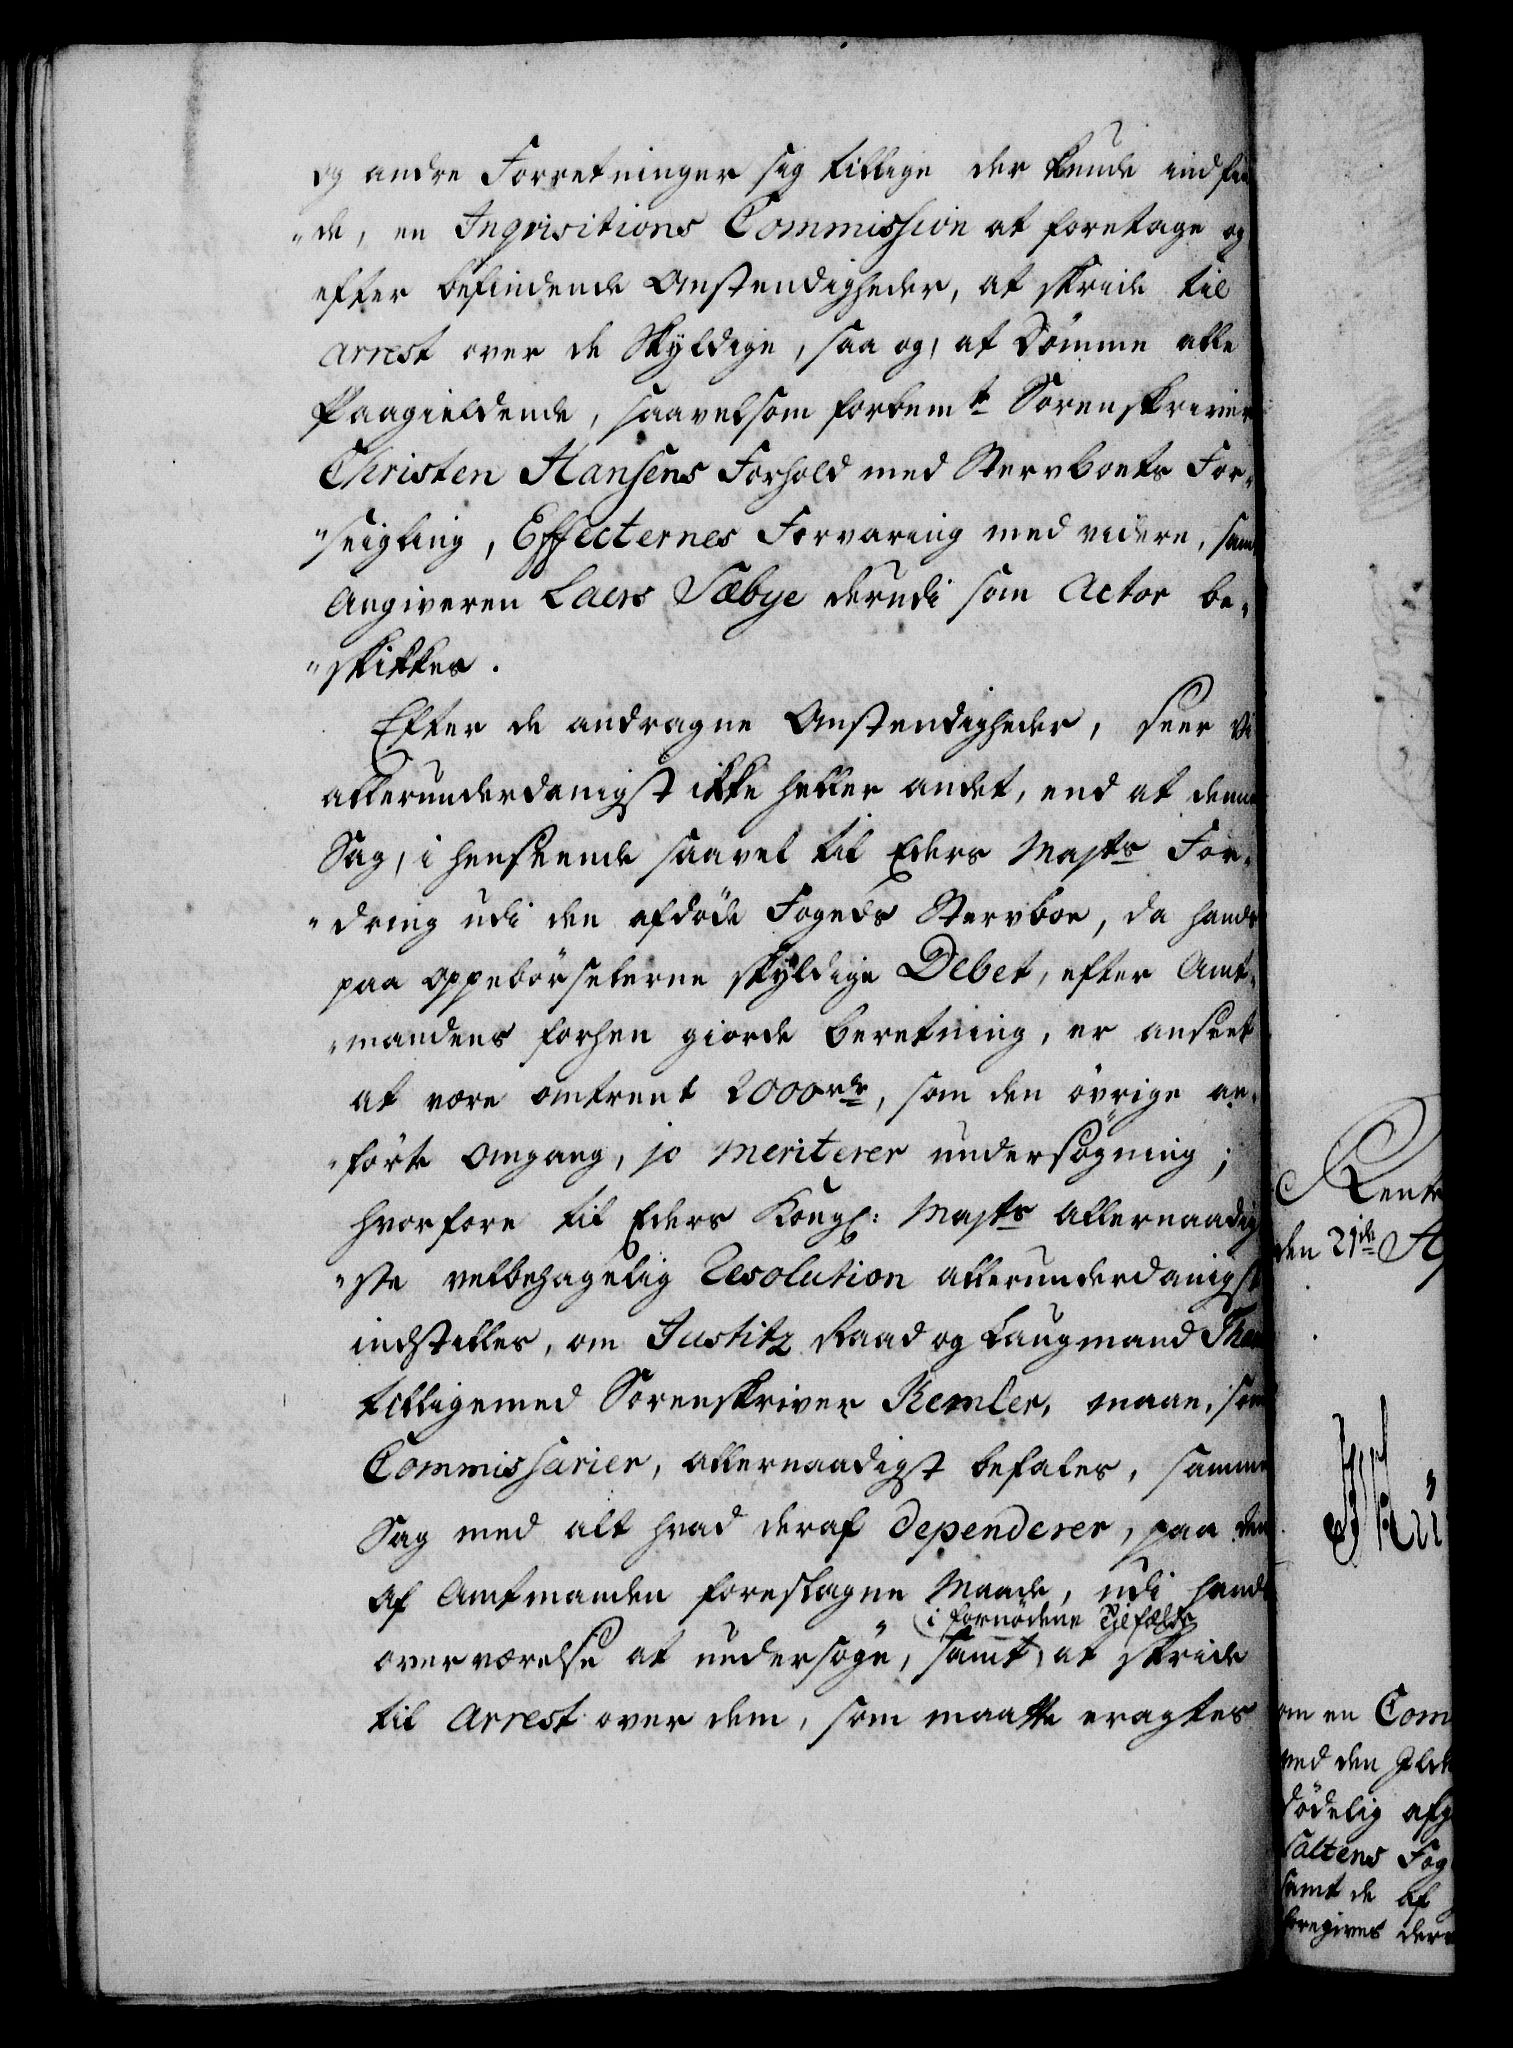 og andre Forretninger sig tillige der kunde indfin
"de, en Inqvisitions Commission at foretage og
efter befindende Omstendigheder, at skride til
Arrest over de Skyldige, saa og, at Dömme alle
Paagieldende, saavelsom forbemte Sorenskriver
Christen Hansens Forhold med Stervboets For-
"seigling, Effecternes Forvaring med videre, samt
Angiveren Laers Sæbye derudi som Actor be-
"skikkes.
Efter de andragne Omstendigheder, seer Vi
allerunderdanigst ikke heller andet, end at denne
Sag, i henseende saavel til Eders Maÿts For-
"dring udi den afdöde Fogeds Stervboe, da hands
paa oppebörselerne skyldige Debet, efter Amt-
"mandens forhen giorde beretning, er anseet
at være omtrent 2000 rdr, som den övrige an-
"förte omgang, jo meriterer undersögning;
hvorfore til Eders Kongl: Maÿts allernaadig
"ste velbehagelig Resolution allerunderdanigst
indstilles, om Justitz Raad og Laugmand
tilligemed Sorenskriver Kemler, maae, som
Commissarier, allernaadigst befales, samme
Sag med alt hvad deraf dependerer, paa den
af Amtmanden foreslagne Maade, udi hands
i fornödene Tilfælde
overværelse at undersöge, samt, at skride
til Arrest over dem, som maatte eragtes
den 21de
om en Com
ved den
dödelig afg
Saltens Fog
samt de af
foregives der